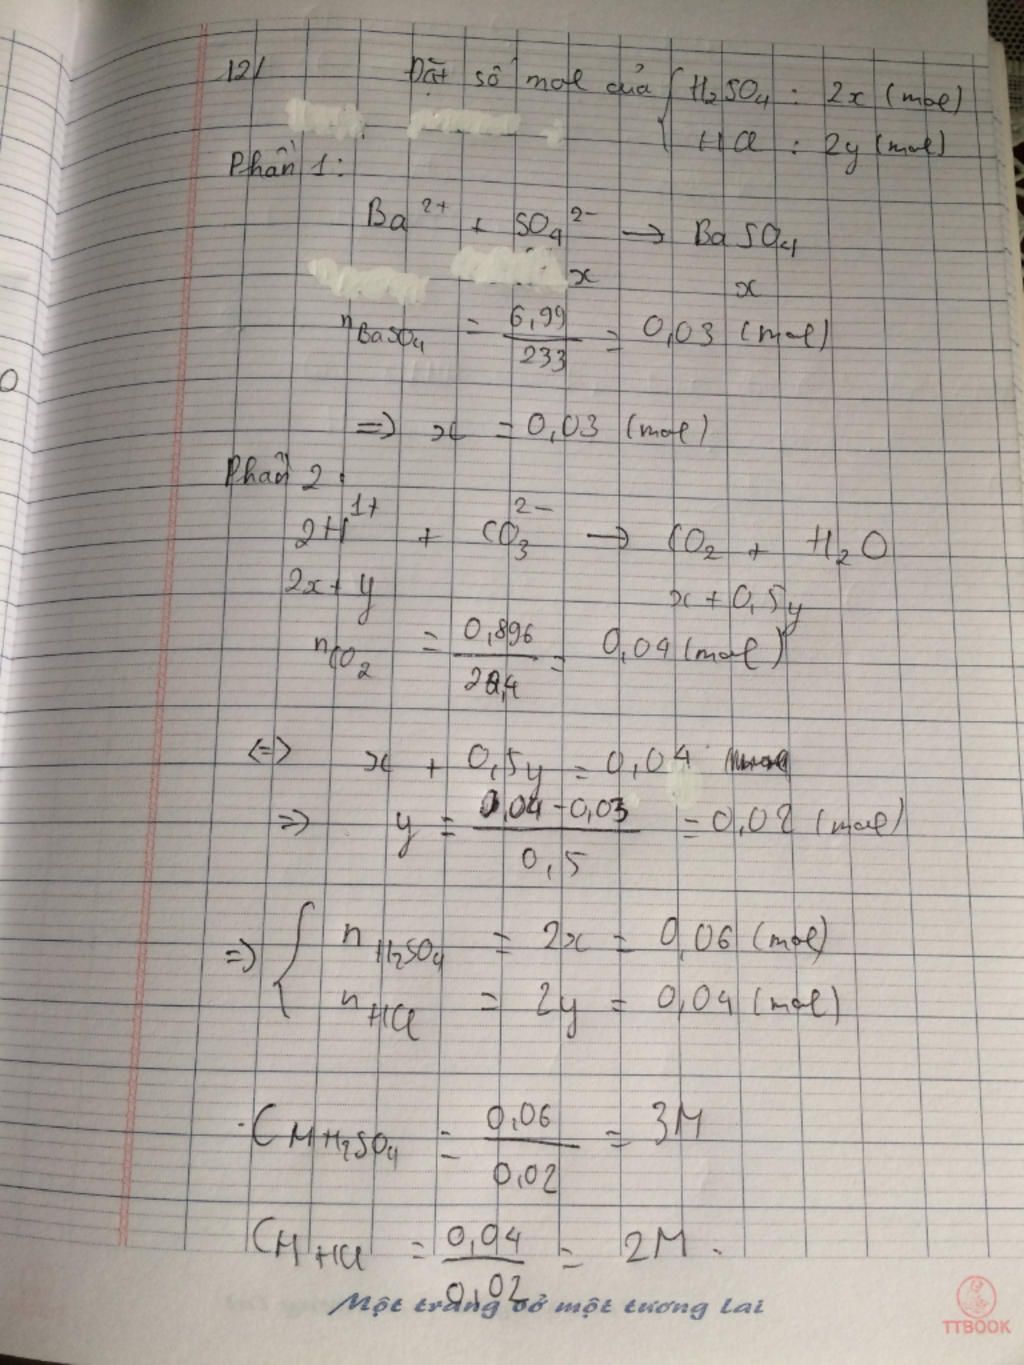 12/ Đặt số mol của { H2SO4 : 2x (mol)
HCl : 2y (mol)
Phần 1:
Ba²⁺ + SO4²⁻ → BaSO4
x x
nBaSO4 = 6,99/233 = 0,03 (mol)
=> x = 0,03 (mol)
Phần 2:
2H¹⁺ + CO3²⁻ → CO2 + H2O
2x+y x+0,5y
nCO2 = 0,896/22,4 = 0,04 (mol)
<=> x + 0,5y = 0,04
=> y = 0,04-0,03/0,5 = 0,02 (mol)
=> { nH2SO4 = 2x = 0,06 (mol)
nHCl = 2y = 0,04 (mol)
CM H2SO4 = 0,06/0,02 = 3M
CM HCl = 0,04/0,02 = 2M.
Một trang vở một tương lai
TTBOOK